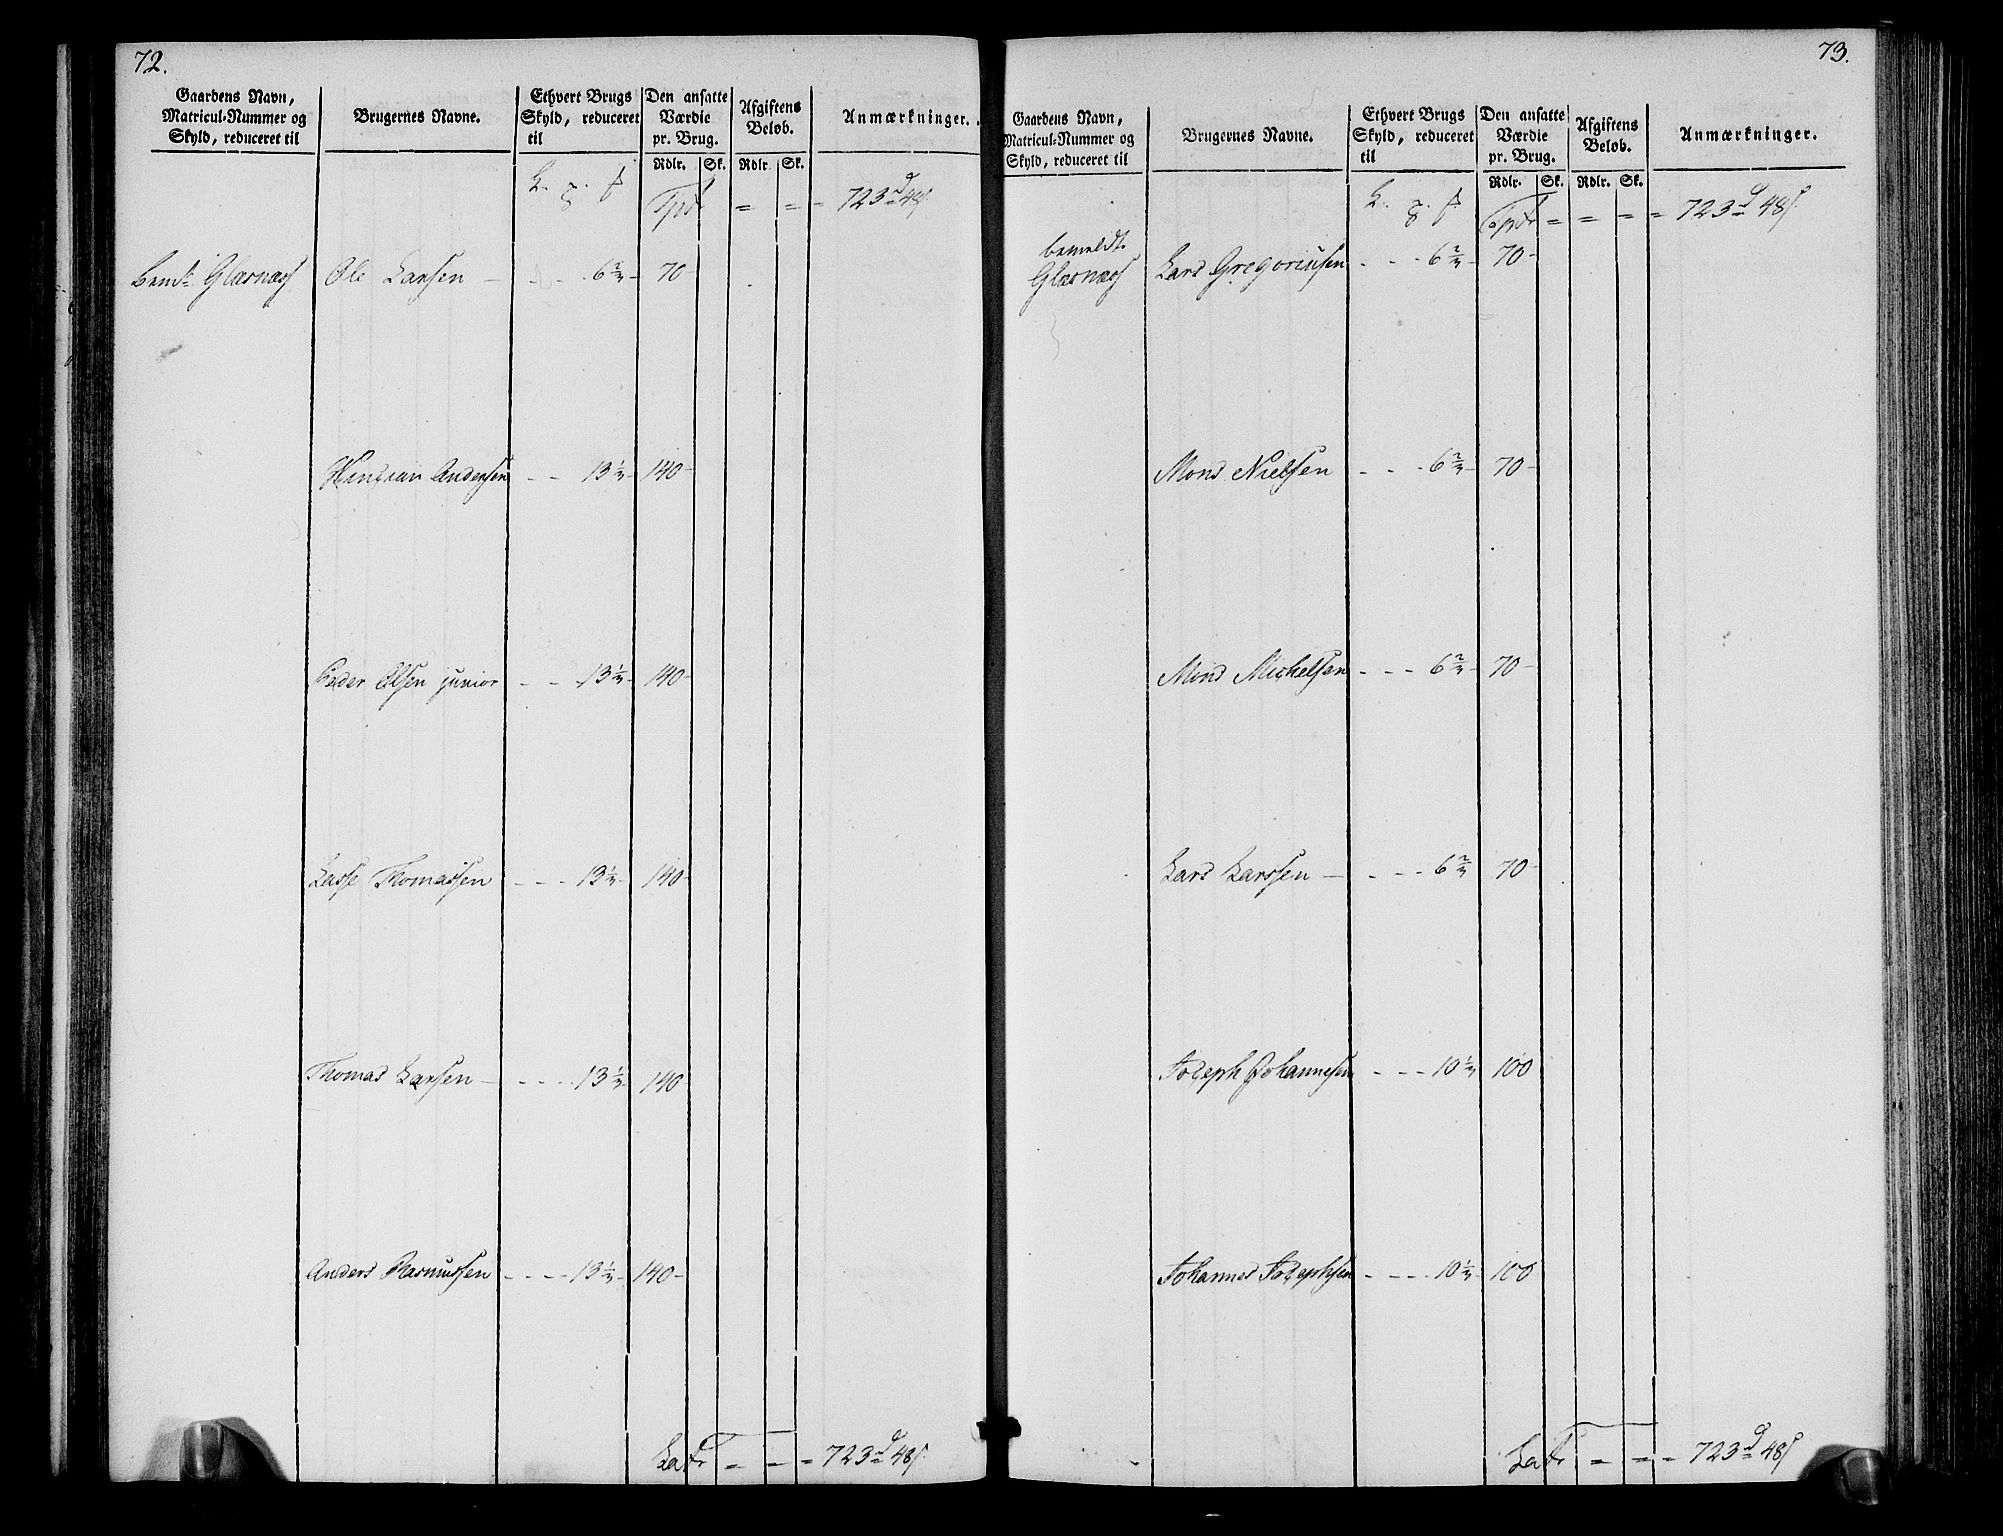 72.
Gaardens Navn, Matricul-Nummer og Skyld, reduceret til
Brugernes Navne.
Ethvert Brugs Skyld, reduceret til
Den ansatte Værdie pr. Brug.
Afgiftens Beløb.
Anmærkninger.
Rdlr. Sk. Rdlr. Sk.
Tptr = = = 723 d 48 s.
Bem.te Glæsnæss Ole Larsen - - - 6 2/3 - 70 -
Andersen - - 13 1/3 - 140 -
Peder Olsen junior - - 13 1/3 - 140 -
Lasse Thomassen - - - 13 1/3 - 140 -
Thomas Larsen - - - - 13 1/3 - 140 -
Anders Rasmussen - - - - 13 1/3 - 140 -
Latr = = = 723 d 48 s.
73.
Gaardens Navn, Matricul-Nummer og Skyld, reduceret til
Brugernes Navne.
Ethvert Brugs Skyld, reduceret til
Den ansatte Værdie pr. Brug.
Afgiftens Beløb.
Anmærkninger.
Rdlr. Sk. Rdlr. Sk.
Tptr = = = = 723 d 48 s.
bemeldte
Glæsnæss Lars Gregoriusen - - - 6 2/3 - 70 -
Mons Nielsen - - - 6 2/3 - 70 -
Mons Michelsen - - - 6 2/3 - 70 -
Lars Larssen - - - - 6 2/3 70 -
Joseph Johannesen - - - 10 1/3 - 100
Johannes Josephsen - - - - 10 1/3 - 100
Latr = = = 723 d 48 s